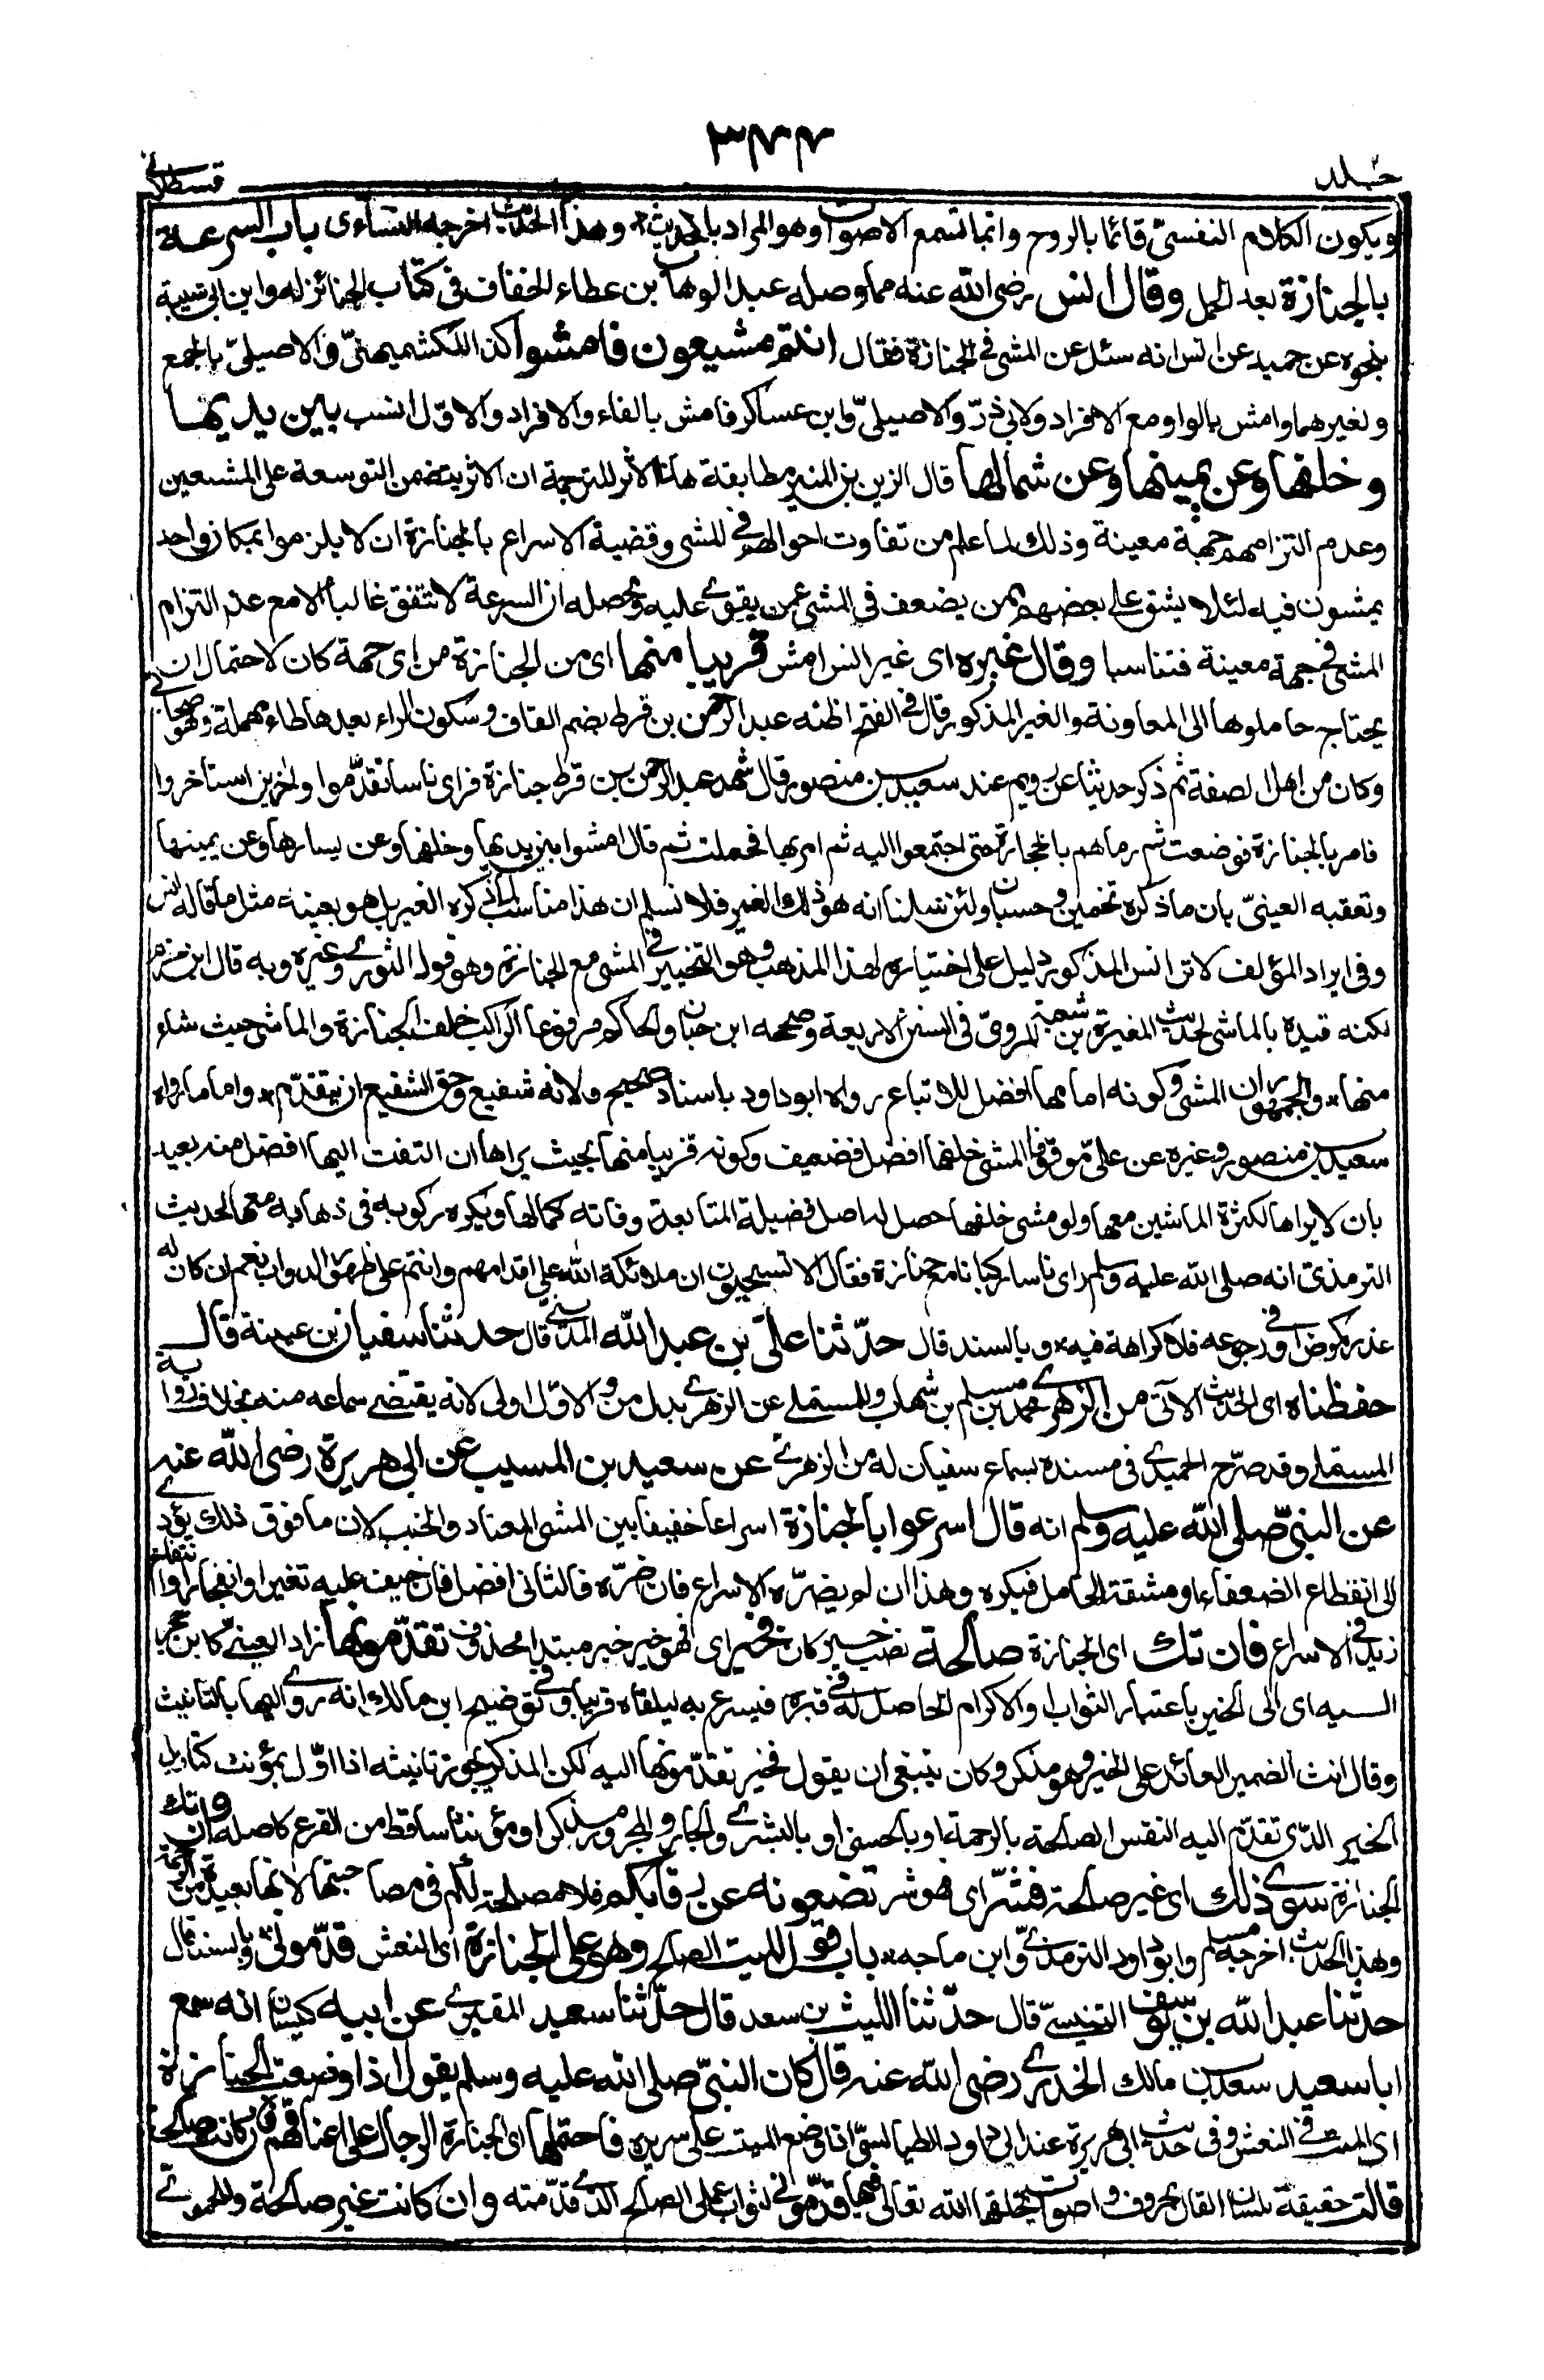 ٣٧٧
جلد
قسطلاني
ويكون الكلام النفسيّ قائما بالروح وانما تسمع الاصوات وهو المراد بالحديث * وهذا الحديث اخرجه النساءى باب السرعة
بالجنازة بعد الحمل وقال انس رضى الله عنه مما وصله عبد الوهاب بن عطاء الخفاف فى كتاب الجنائز له وابن ابى شيبة
بنحوه عن حميد عن انس انه سئل عن المشى فى الجنازة فقال انتم مشيعون فامشوا كذا للكشميهنىّ والاصيلىّ بالجمع
ولغيرهما وامش بالواو مع الافراد ولابى ذرّ والاصيلىّ وابن عساكر فامش بالفاء والافراد والاوّل انسب بين يديها
وخلفها وعن يمينها وعن شمالها قال الزين بن المنير مطابقة هذا الأثر للترجمة ان الاثر يتضمن التوسعة على المشيعين
وعدم التزامهم جهة معينة وذلك لما علم من تفاوت احوالهم فى المشى وقضية الاسراع بالجنازة ان لا يلزموا بمكان واحد
يمشون فيه لئلا يشق على بعضهم ممن يضعف فى المشى عمن يقوى عليه ومحصله ان السرعة لا تتفق غالبا الا مع عدم التزام
المشى فى جهة معينة فتناسبا وقال غيره اى غير انس امش قريبا منها اى من الجنازة من اى جهة كان لاحتمال ان
يحتاج حاملوها الى المعاونة والغير المذكور قال فى الفتح اظنه عبد الرحمن بن قرط بضم القاف وسكون الراء بعدها طاء مهملة وهو صحابى
وكان من اهل الصفة ثم ذكر حديثا عن رويم عند سعيد بن منصور قال شهد عبد الرحمن بن قرط جنازة فراى ناسا تقدّموا واخرين استاخروا
فامر بالجنازة فوضعت ثم رماهم بالحجارة حتى اجتمعوا اليه ثم امر بها فحملت ثم قال امشوا بين يديها وخلفها وعن يسارها وعن يمينها
وتعقبه العينىّ بان ما ذكره تخمين وحسبان ولئن سلمنا انه هو ذلك الغير فلا نسلم ان هذا مناسب لما ذكره الغير بل هو بعينه مثل ما قاله انس
وفى ايراد المؤلف لاثر انس المذكور دليل على اختياره لهذا المذهب وهو التخيير فى المشى مع الجنازة وهو قول الثورى وغيره وبه قال ابن حزم
لكنه قيده بالماشى لحديث المغيرة بن شعبة المروىّ فى السنن الاربعة وصححه ابن حبان والحاكم مرفوعا الراكب خلف الجنازة والماشى حيث شاء
منها * والجمهور ان المشى وكونه امامها افضل للاتباع رواه ابو داود باسناد صحيح ولانه شفيع وحق الشفيع ان يتقدّم * واما ما رواه
سعيد بن منصور وغيره عن علىّ موقوفا المشى خلفها افضل فضعيف وكونه قريبا منها بحيث يراها ان التفت اليها افضل منه بعيد
بان لا يراها لكثرة الماشين معها ولو مشى خلفها حصل له اصل فضيلة المتابعة وفاته كمالها ويكره ركوبه فى ذهابه معها لحديث
الترمذى انه صلى الله عليه وسلم راى ناسا ركبانا مع جنازة فقال الا تستحيون ان ملائكة الله على اقدامهم وانتم على ظهور الدواب نعم ان كان له
عذر كمرض او فى رجوعه فلا كراهة فيه * وبالسند قال حدّثنا علىّ بن عبد الله المدينىّ قال حدثنا سفيان بن عيينة قال
حفظناه اى الحديث الآتى من الزهرى محمد بن مسلم بن شهاب وللمستملى عن الزهرى بدل من والاوّل اولى لانه يقتضى سماعه منه بخلاف رواية
المستملى وقد صرّح الحميدى فى مسنده بسماع سفيان له من الزهرى عن سعيد بن المسيب عن ابى هريرة رضى الله عنه
عن النبىّ صلى الله عليه وسلم انه قال اسرعوا بالجنازة اسراعا خفيفا بين المشى المعتاد والخبب لان ما فوق ذلك يؤدى
الى انقطاع الضعفاء او مشقة الحامل فيكره وهذا ان لم يضرّه الاسراع فان ضرّه فالتانى افضل فان خيف عليه تغير او انفجار او انتفاخ
زيد فى الاسراع فان تك اى الجنازة صالحة نصب خبر كان فخير اى فهو خير خبر مبتدا محذوف تقدّمونها زاد العينىّ كابن حجر
اليه اى الى الخير باعتبار الثواب والاكرام الحاصل له فى قبره فيسرع به ليلقاه قريبا وفى توضيح ابن مالك انه روى اليها بالتانيث
وقال انث الضمير العائد على الخير وهو مذكر وكان ينبغى ان يقول فخير تقدّمونها اليه لكن المذكر يجوز تانيثه اذا اوّل بمؤنث كتاويل
الخير الذى تقدّم اليه النفس الصالحة بالرحمة او بالحسنى او بالبشرى والجار والمجرور مذكرا او مؤنثا ساقط من الفرع كاصله وان تك
الجنازة سوى ذلك اى غير صالحة فشرّ اى فهو شر تضعونه عن رقابكم فلا مصلحة لكم فى مصاحبتها لانها بعيدة من الرحمة
وهذا الحديث اخرجه مسلم وابو داود والترمذى وابن ماجه * باب قول الميت الصالح وهو على الجنازة اى النعش قدّمونى * وبالسند قال
حدثنا عبد الله بن يوسف التنيسىّ قال حدّثنا الليث بن سعد قال حدّثنا سعيد المقبرى عن ابيه كيسان انه سمع
ابا سعيد سعد بن مالك الخدرى رضى الله عنه قال كان النبىّ صلى الله عليه وسلم يقول اذا وضعت الجنازة
اى الميت فى النعش وفى حديث ابى هريرة عند ابى داود الطيالسىّ اذا وضع الميت على سريره فاحتملها اى الجنازة الرجال على اعناقهم فان كانت صالحة
قالت حقيقة بلسان القال بحروف واصوات يخلقها الله تعالى فيها قدّمونى لثواب عملى الصالح الذى قدّمته وان كانت غير صالحة وللحموى